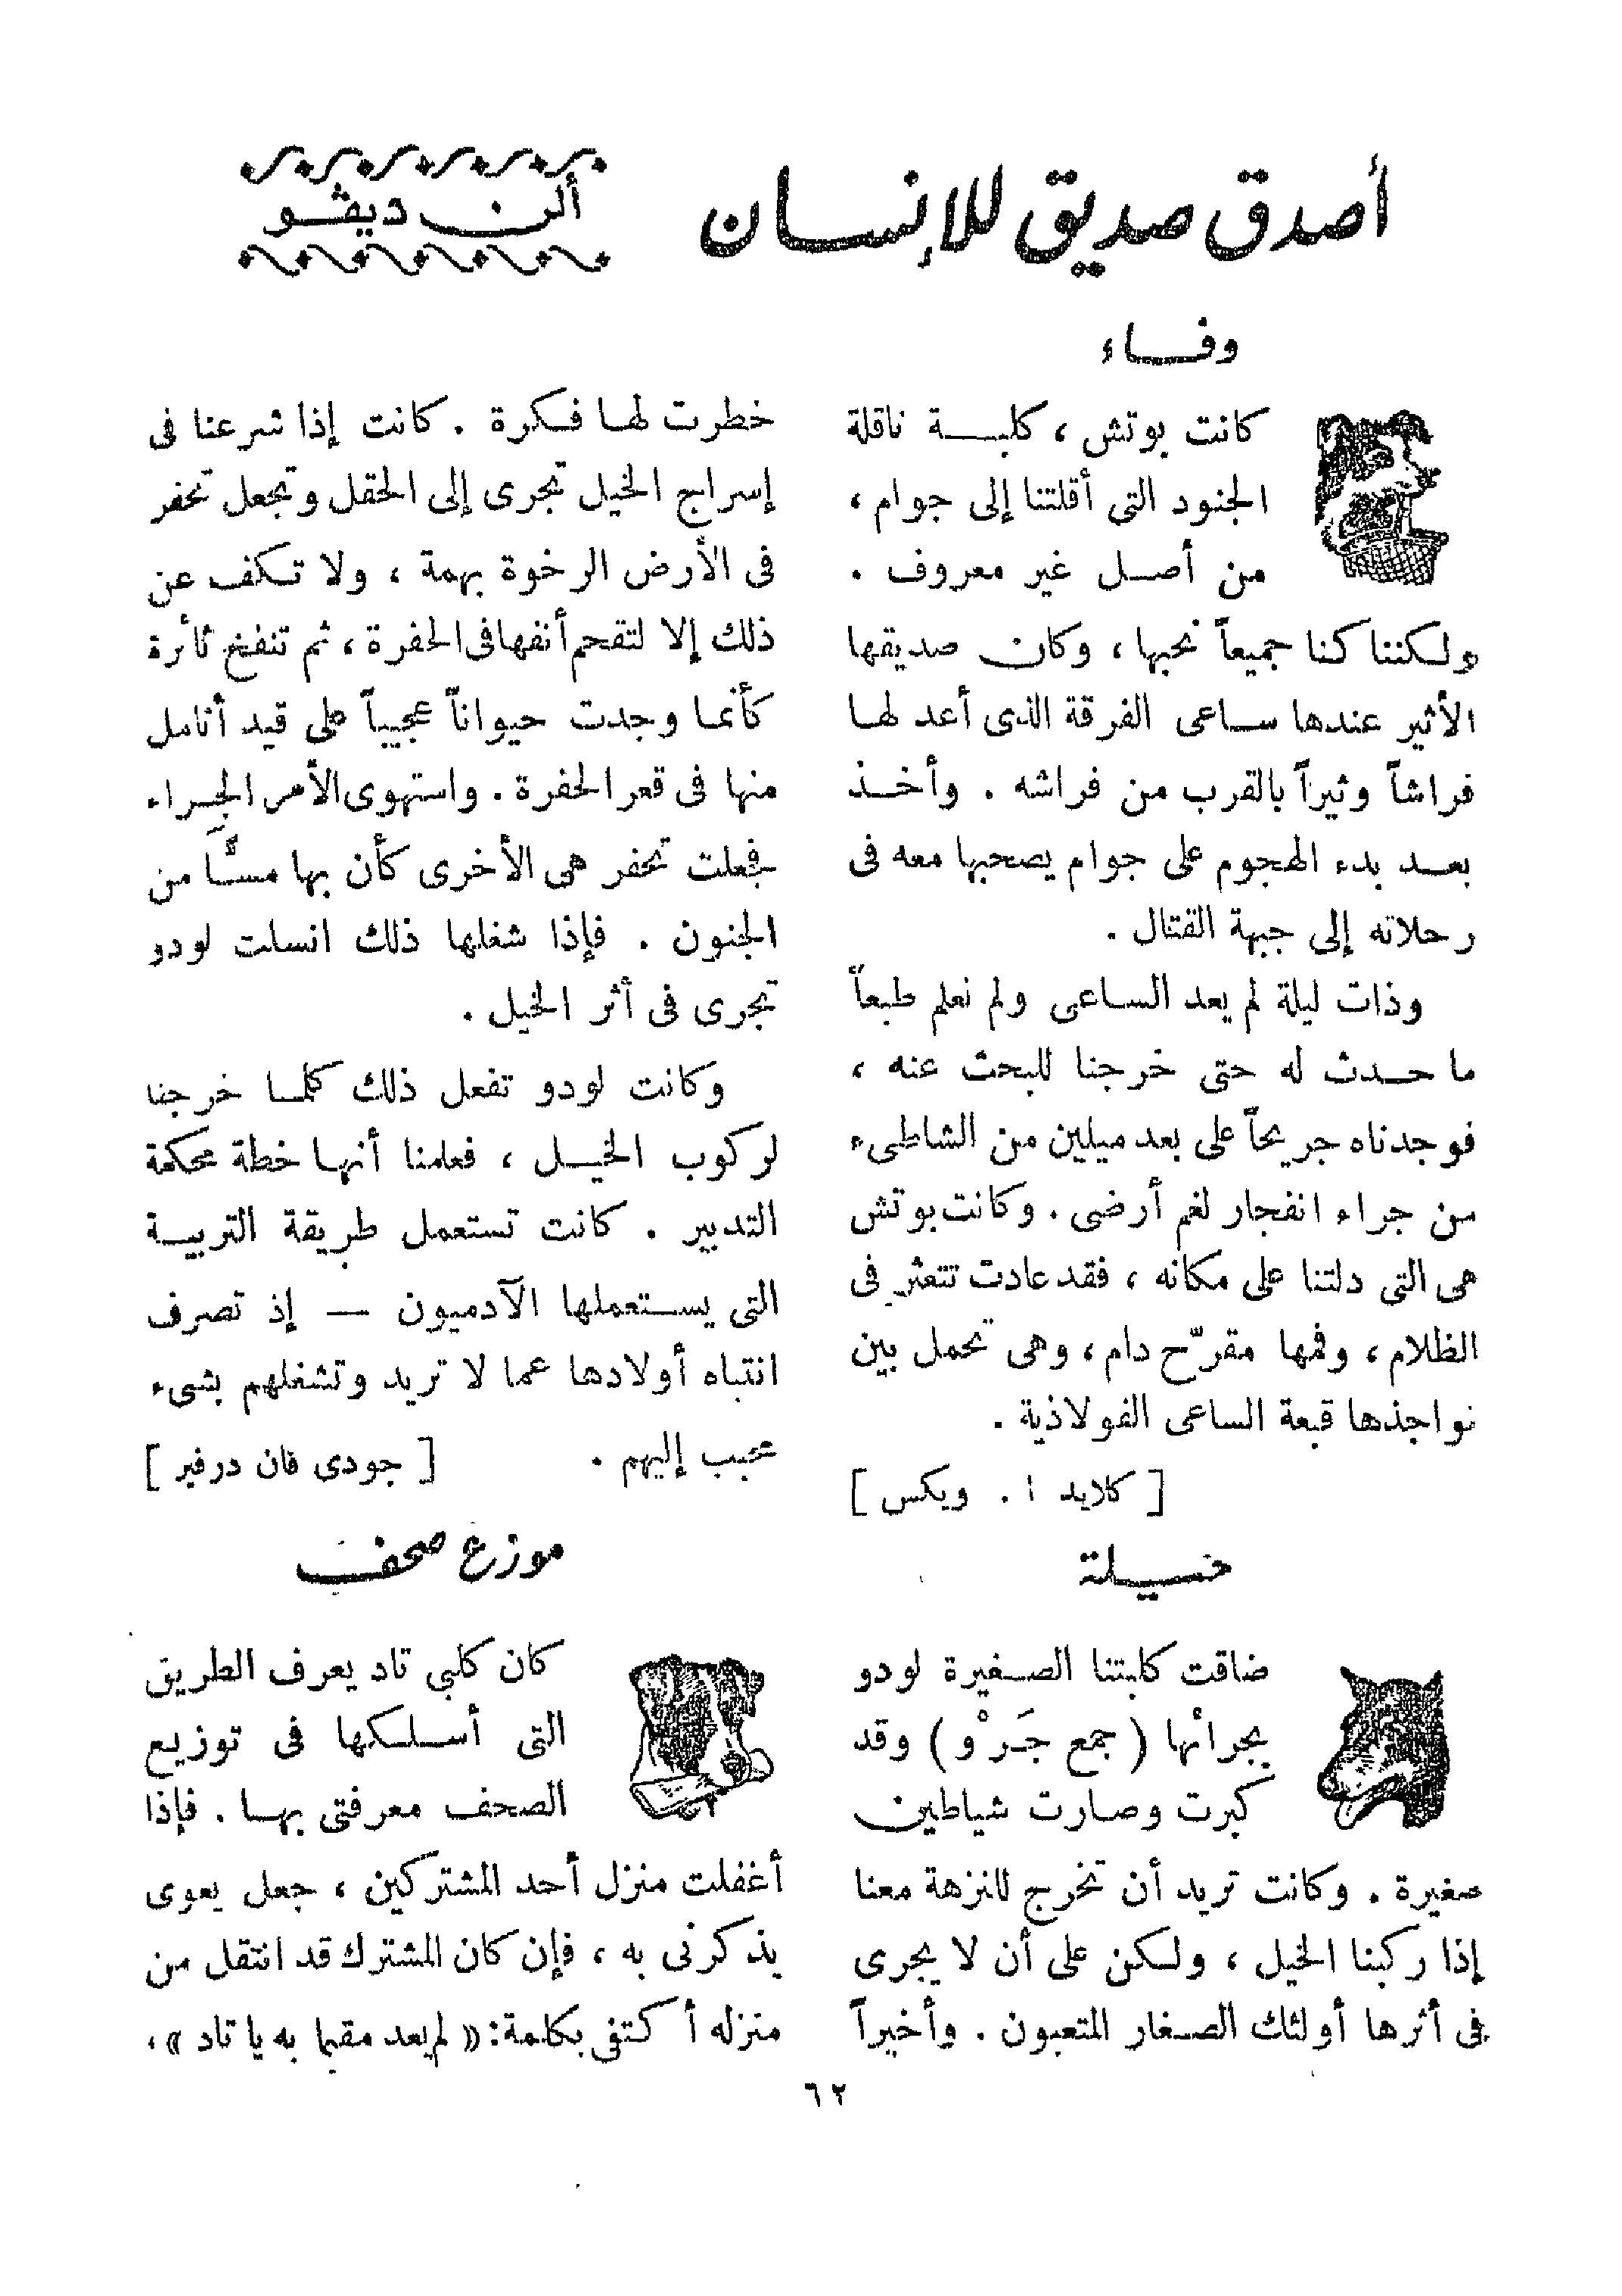 أصدق صديق للإنسان
ألن ديڤو
وفاء
كانت بوتش، كلبة ناقلة
الجنود التى أقلتنا إلى جوام،
من أصل غير معروف .
ولكننا كنا جميعاً نحبها، وكان صديقها
الأثير عندها ساعى الفرقة الذى أعد لها
فراشاً وثيراً بالقرب من فراشه . وأخذ
بعد بدء الهجوم على جوام يصحبها معه فى
رحلاته إلى جبهة القتال .
وذات ليلة لم يعد الساعى ولم نعلم طبعاً
ما حدث له حتى خرجنا للبحث عنه ،
فوجدناه جريحاً على بعد ميلين من الشاطىء
من جراء انفجار لغم أرضى . وكانت بوتش
هى التى دلتنا على مكانه ، فقد عادت تتعثر فى
الظلام، وفمها مقرّح دام، وهى تحمل بين
نواجذها قبعة الساعى الفولاذية .
[ كلايد ا . ويكس ]
حيلة
ضاقت كلبتنا الصغيرة لودو
بجرائها ( جمع جَرْو ) وقد
كبرت وصارت شياطين
صغيرة . وكانت تريد أن تخرج للنزهة معنا
إذا ركبنا الخيل ، ولكن على أن لا يجرى
فى أثرها أولئك الصغار المتعبون . وأخيراً
خطرت لها فكرة . كانت إذا شرعنا فى
إسراج الخيل تجرى إلى الحقل وتجعل تحفر
فى الأرض الرخوة بهمة ، ولا تكف عن
ذلك إلا لتقحم أنفها فى الحفرة ، ثم تنفخ ثائرة
كأنما وجدت حيواناً عجيباً على قيد أنامل
منها فى قعر الحفرة . واستهوى الأمر الجراء
فجعلت تحفر هى الأخرى كأن بها مسًّا من
الجنون . فإذا شغلها ذلك انسلت لودو
تجرى فى أثر الخيل .
وكانت لودو تفعل ذلك كلما خرجنا
لركوب الخيل ، فعلمنا أنها خطة محكمة
التدبير . كانت تستعمل طريقة التربية
التى يستعملها الآدميون — إذ تصرف
انتباه أولادها عما لا تريد وتشغلهم بشىء
محبب إليهم . [ جودى فان درفير ]
موزع صحف
كان كلبى تاد يعرف الطريق
التى أسلكها فى توزيع
الصحف معرفتى بها . فإذا
أغفلت منزل أحد المشتركين ، جعل يعوى
يذكرنى به ، فإن كان المشترك قد انتقل من
منزله أكتفى بكلمة: « لم يعد مقيما به يا تاد »،
٦٢